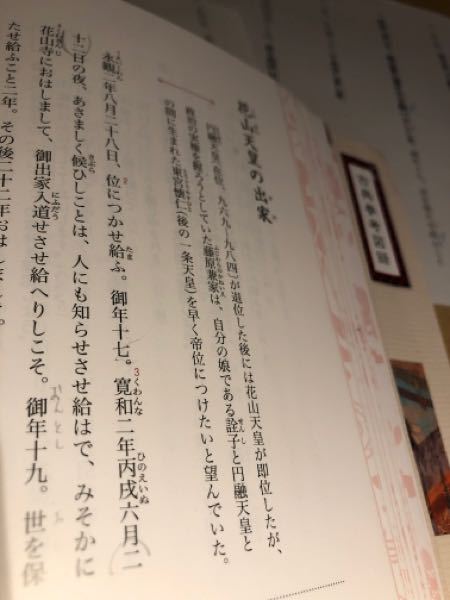 花山天皇の出家
円融天皇(在位、九六九~九八四)が退位した後には花山天皇が即位したが、
政治の実権を握ろうとしていた藤原兼家は、自分の娘である詮子と円融天皇と
の間に生まれた東宮懐仁(後の一条天皇)を早く帝位につけたいと望んでいた。
永観二年八月二十八日、位につかせ給ふ。御年十七。寛和二年丙戌六月二
十二日の夜、あさましく候ひしことは、人にも知らせさせ給はで、みそかに
花山寺におはしまして、御出家入道せさせ給へりしこそ。御年十九。世を保
たせ給ふこと二年。その後二十二年おはしましき。
古典参考図録